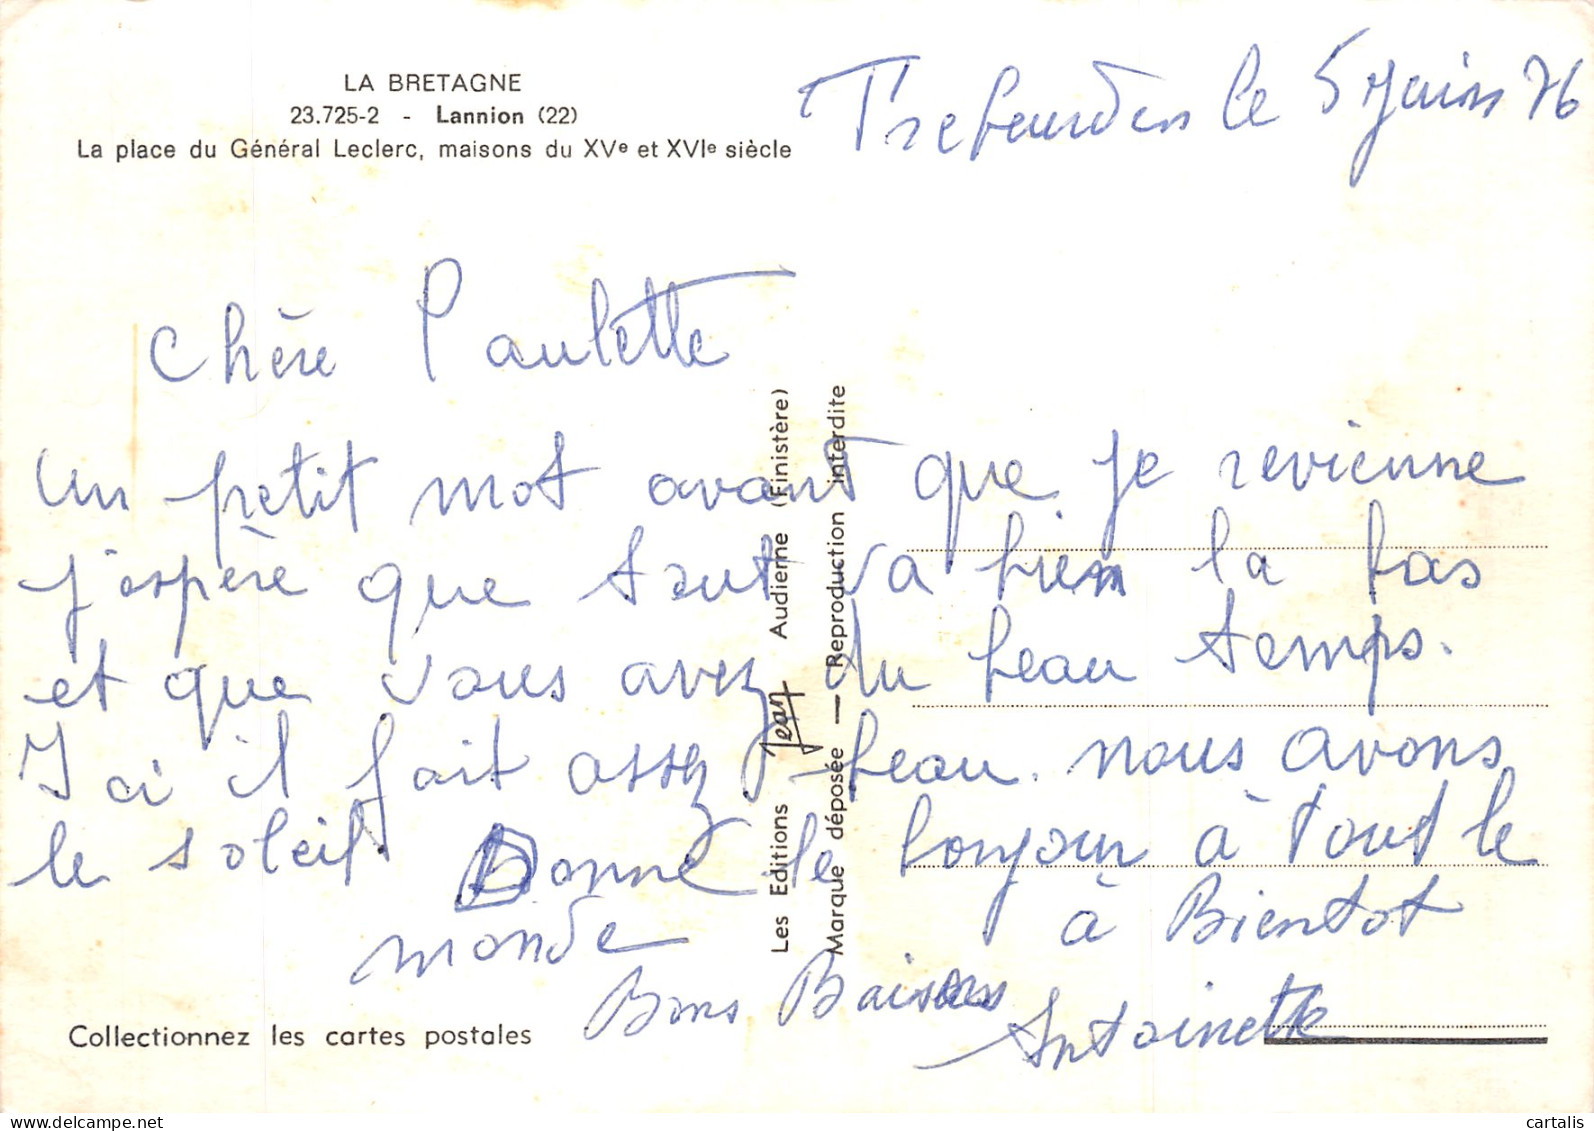 LA BRETAGNE
23.725-2 - Lannion (22)
La place du Général Leclerc, maisons du XVe et XVIe siècle
Trebeurden le 5 juin 76
Chère Paulette
un petit mot avant que je revienne
j'espère que tout va bien la bas
et que vous avez du beau temps.
Ici il fait assez beau. nous avons
le soleil. Donne le bonjour à tout le
monde
à Bientot
Bons Baisers
Antoinette
Les Editions Jean Audierne (Finistère)
Marque déposée — Reproduction interdite
Collectionnez les cartes postales
cartalis